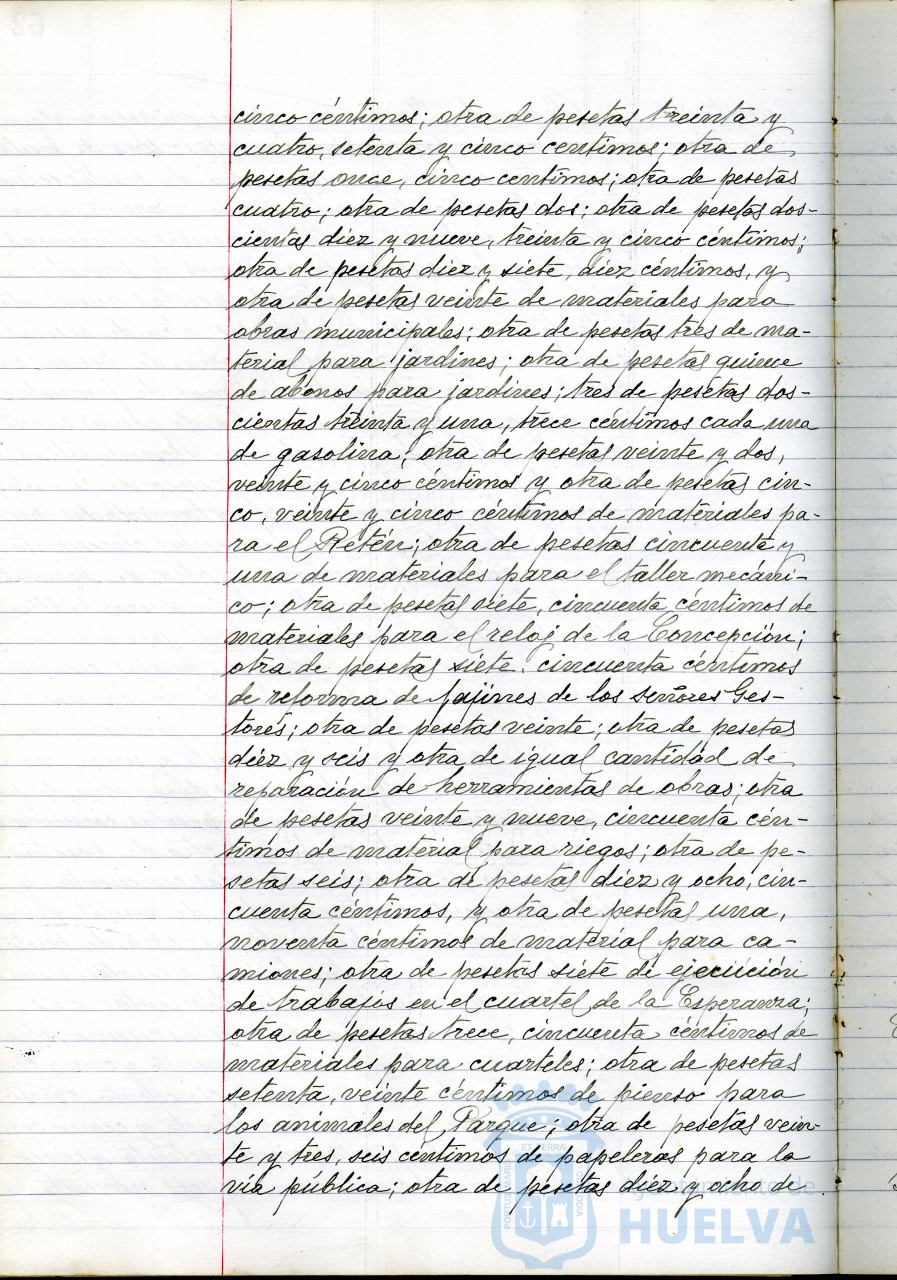 cinco céntimos; otra de pesetas treinta y
cuatro, setenta y cinco centimos; otra de
pesetas once, cinco centimos; otra de pesetas
cuatro; otra de pesetas dos; otra de pesetas dos-
cientas diez y nueve, treinta y cinco céntimos;
otra de pesetas diez y siete, diez céntimos, y
otra de pesetas veinte de materiales para
obras municipales; otra de pesetas tres de ma-
terial para jardines; otra de pesetas quince
de abonos para jardines; tres de pesetas dos-
cientas treinta y una, trece céntimos cada una
de gasolina; otra de pesetas veinte y dos,
veinte y cinco céntimos y otra de pesetas cin-
co, veinte y cinco céntimos de materiales pa-
ra el Retén; otra de pesetas cincuenta y
una de materiales para el taller mecáni-
co; otra de pesetas siete, cincuenta céntimos de
materiales para el reloj de la Concepción;
otra de pesetas siete cincuenta céntimos
de reforma de fajines de los señores Ges-
tores; otra de pesetas veinte; otra de pesetas
diez y seis y otra de igual cantidad de
reparación de herramientas de obras; otra
de pesetas veinte y nueve, cincuenta cén-
timos de material para riegos; otra de pe-
setas seis; otra de pesetas diez y ocho, cin-
cuenta céntimos, y otra de pesetas una,
noventa céntimos de material para ca-
miones; otra de pesetas siete de ejecución
de trabajos en el cuartel de la Esperanza;
otra de pesetas trece, cincuenta céntimos de
materiales para cuarteles; otra de pesetas
setenta, veinte céntimos de pienso para
los animales del Parque; otra de pesetas vein-
te y tres, seis centimos de papeleras para la
vía pública; otra de pesetas diez y ocho de
Ayuntamiento de
HUELVA